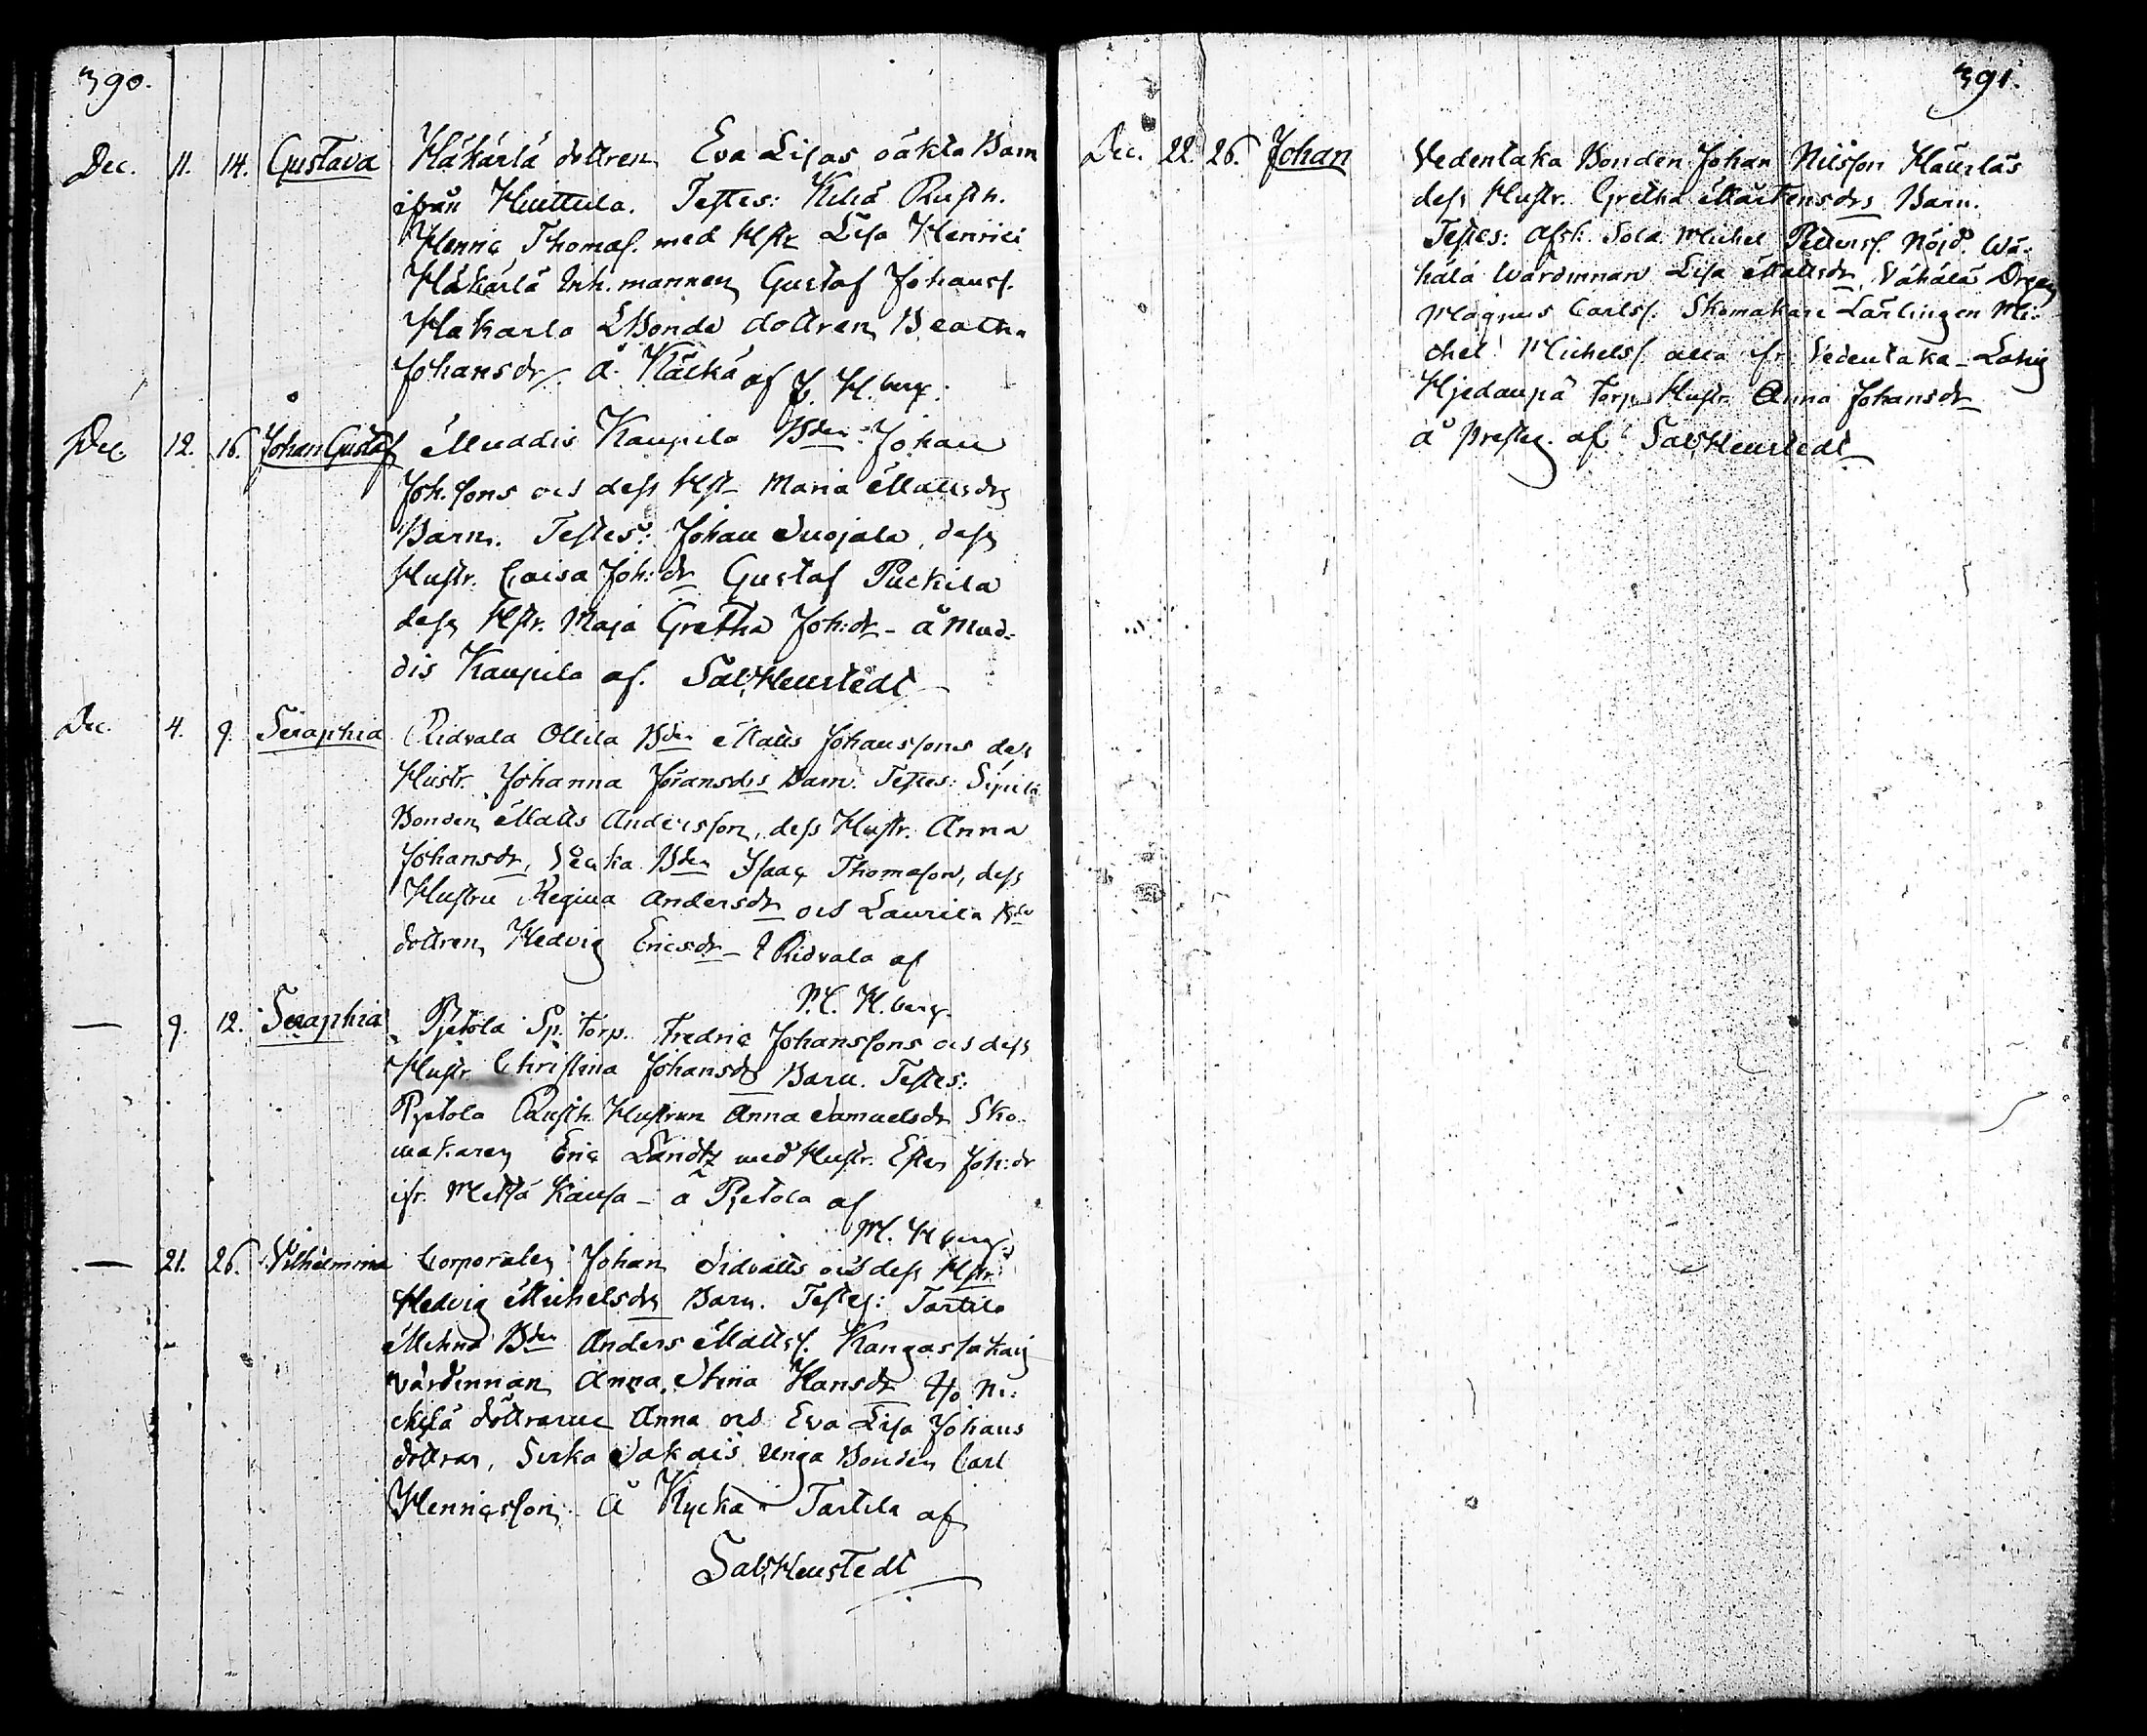 390.
Dec. 11. 14. Gustava Häkärlä dottren Eva Lisas oäkta Barn
ifrån Huittula. Testes: Rusth.
Henric Thomas. med Hstr Lisa Henrici
Häkärlä Inh. mannen Gustaf Johanss.
Hakarla Bonde dottren Beatha
Johansdr. å af H.berg.
Dec. 12. 16. Johan Gustaf Muddis Kaupila Bden Johan
Joh.sons och dess Hstr Maria Mattsdrs
Barn. Testes: Johan Suojala, dess
Hustr. Caisa Joh:dr Gustaf Puckila
dess Hstr. Maja Gretha Joh:dr - å Mud-
dis Kaupila af. Sal. Heurstedt
Dec. 4. 9. Seraphia Ridvala Ollila Bden Matts Johanssons dess
Hustr. Johanna Joransdrs barn. Testes: Sipilä
Bonden Matts Andersson, dess Hustr. Anna
Johansdr, Bden Isaac Thomason, dess
Hustru Regina Andersdr och Laurila Bde
dottren Hedvig Ericsdr - i Ridvala af
M. H.berg.
— 9. 12. Seraphia Pjetola Sp. torp. Fredric Johanssons och dess
Hustr. Christina Johansdrs Barn. Testes:
Pjetola Rusth. Hustrun Anna Samuelsdr Sko-
makaren Eric Landtz med Hustr. Ester Joh:dr
ifr. Metsä Kausa - å Pjetola af
M. H.berg.
— 21. 26. Vilhelmina Corporalen Johan Sidvalls och dess Hstr
Hedvig Michelsdrs Barn. Testes: Tartila
Bden Anders Mattss. Kangas
värdinnan Anna Stina Hansdr Ho Ni-
döttrarne Anna och Eva Lisa Johans
döttrar, unga Bonden Carl
Henricsson. å Tartila af
Sal. Heurstedt
391.
Dec. 22. 26. Johan Vedentaka Bonden Johan Nilsson
dess Hustr. Gretha Mårtensdrs Barn.
Testes: Afsk. Sold. Michel Petterss. Nöjd. Wä-
hälä Wärdinnan Lisa Mattsdr, Vähälä Drgen
Magnus Carlss. Skomakare Lärlingen Mi-
chel Michelss. alla ifr. Vedentaka -
torp. Hustr. Anna Johansdr
å Presteg. af Sal. Heurstedt